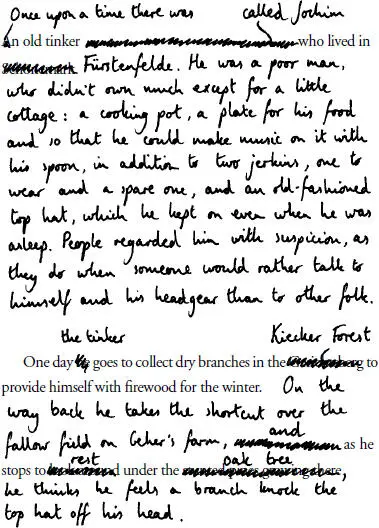 Once upon a time there was called Jochim
An old tinker who lived in
Fürstenfelde. He was a poor man,
who didn't own much except for a little
cottage: a cooking pot, a plate for his food
and so that he could make music on it with
his spoon, in addition to two jerkins, one to
wear and a spare one, and an old-fashioned
top hat, which he kept on even when he was
asleep. People regarded him with suspicion, as
they do when someone would rather talk to
himself and his headgear than to other folk.
the tinker Kiecker Forest
One day goes to collect dry branches in the to
provide himself with firewood for the winter. On the
way back he takes the shortcut over the
fallow field on Geher's farm, and as he
rest oak tree
stops to under the
he thinks he feels a branch knock the
top hat off his head.